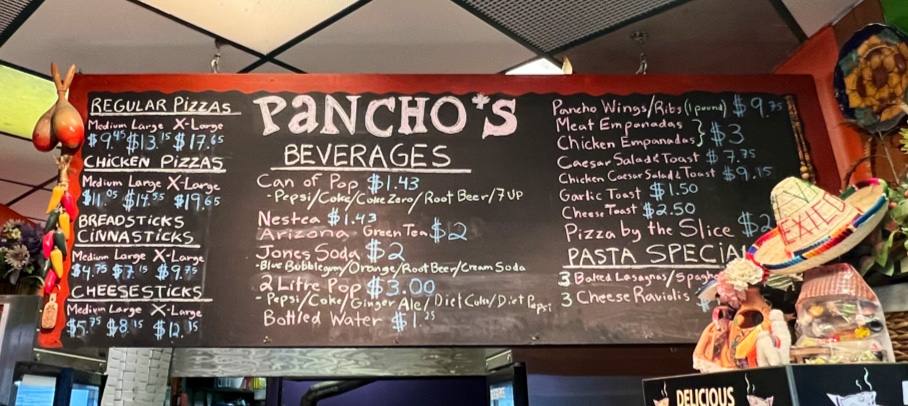 REGULAR PIZZAS
Medium Large X-Large
$9.45 $13.15 $17.65
CHICKEN PIZZAS
Medium Large X-Large
$11.05 $14.55 $19.65
BREADSTICKS
CINNASTICKS
Medium Large X-Large
$4.75 $7.15 $9.75
CHEESESTICKS
Medium Large X-Large
$5.75 $8.15 $12.15
PANCHO'S
BEVERAGES
Can of Pop $1.43
-Pepsi/Coke/Coke Zero/Root Beer/7UP
Nestea $1.43
Arizona Green Tea $2
Jones Soda $2
-Blue Bubblegum/Orange/Root Beer/Cream Soda
2 Litre Pop $3.00
-Pepsi/Coke/Ginger Ale/Diet Coke/Diet Pepsi
Bottled Water $1.25
Pancho Wings/Ribs (1 pound) $9.75
Meat Empanadas
Chicken Empanadas } $3
Caesar Salad & Toast $7.75
Chicken Caesar Salad & Toast $9.15
Garlic Toast $1.50
Cheese Toast $2.50
Pizza by the Slice $2
PASTA SPECIA
3 Baked Lasagnas/Spaghe
3 Cheese Raviolis $
DELICIOUS